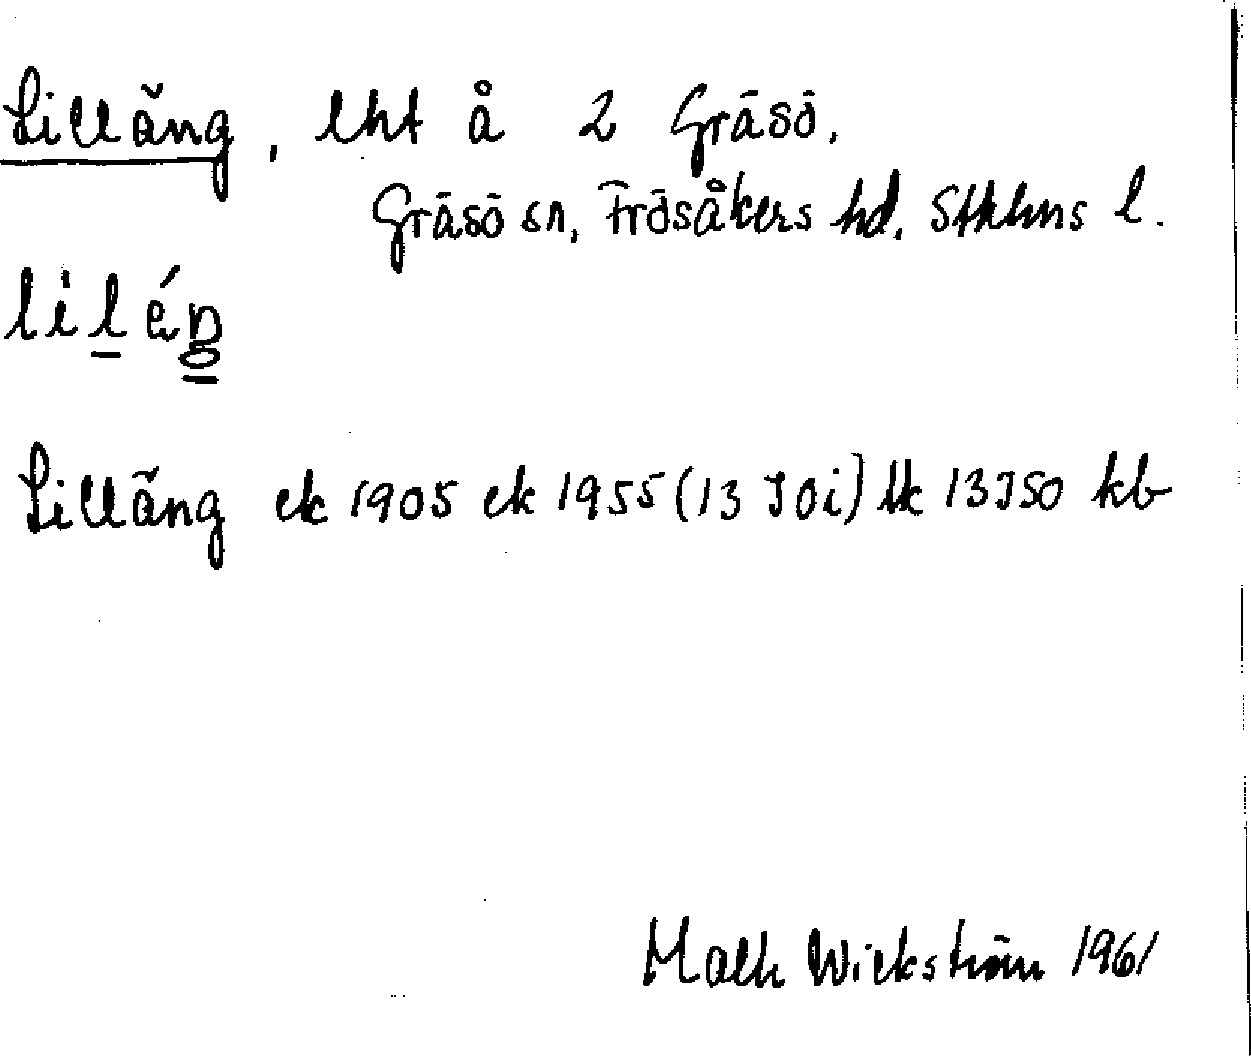 Lilläng, lht å 2 Gräsö,
Gräsö sn, Frösåkers hd. Sthlms l.
lilég
Lilläng ek 1905 ek 1955 (13 J 0i) lk 13 J 50 kb
Wickström 1961